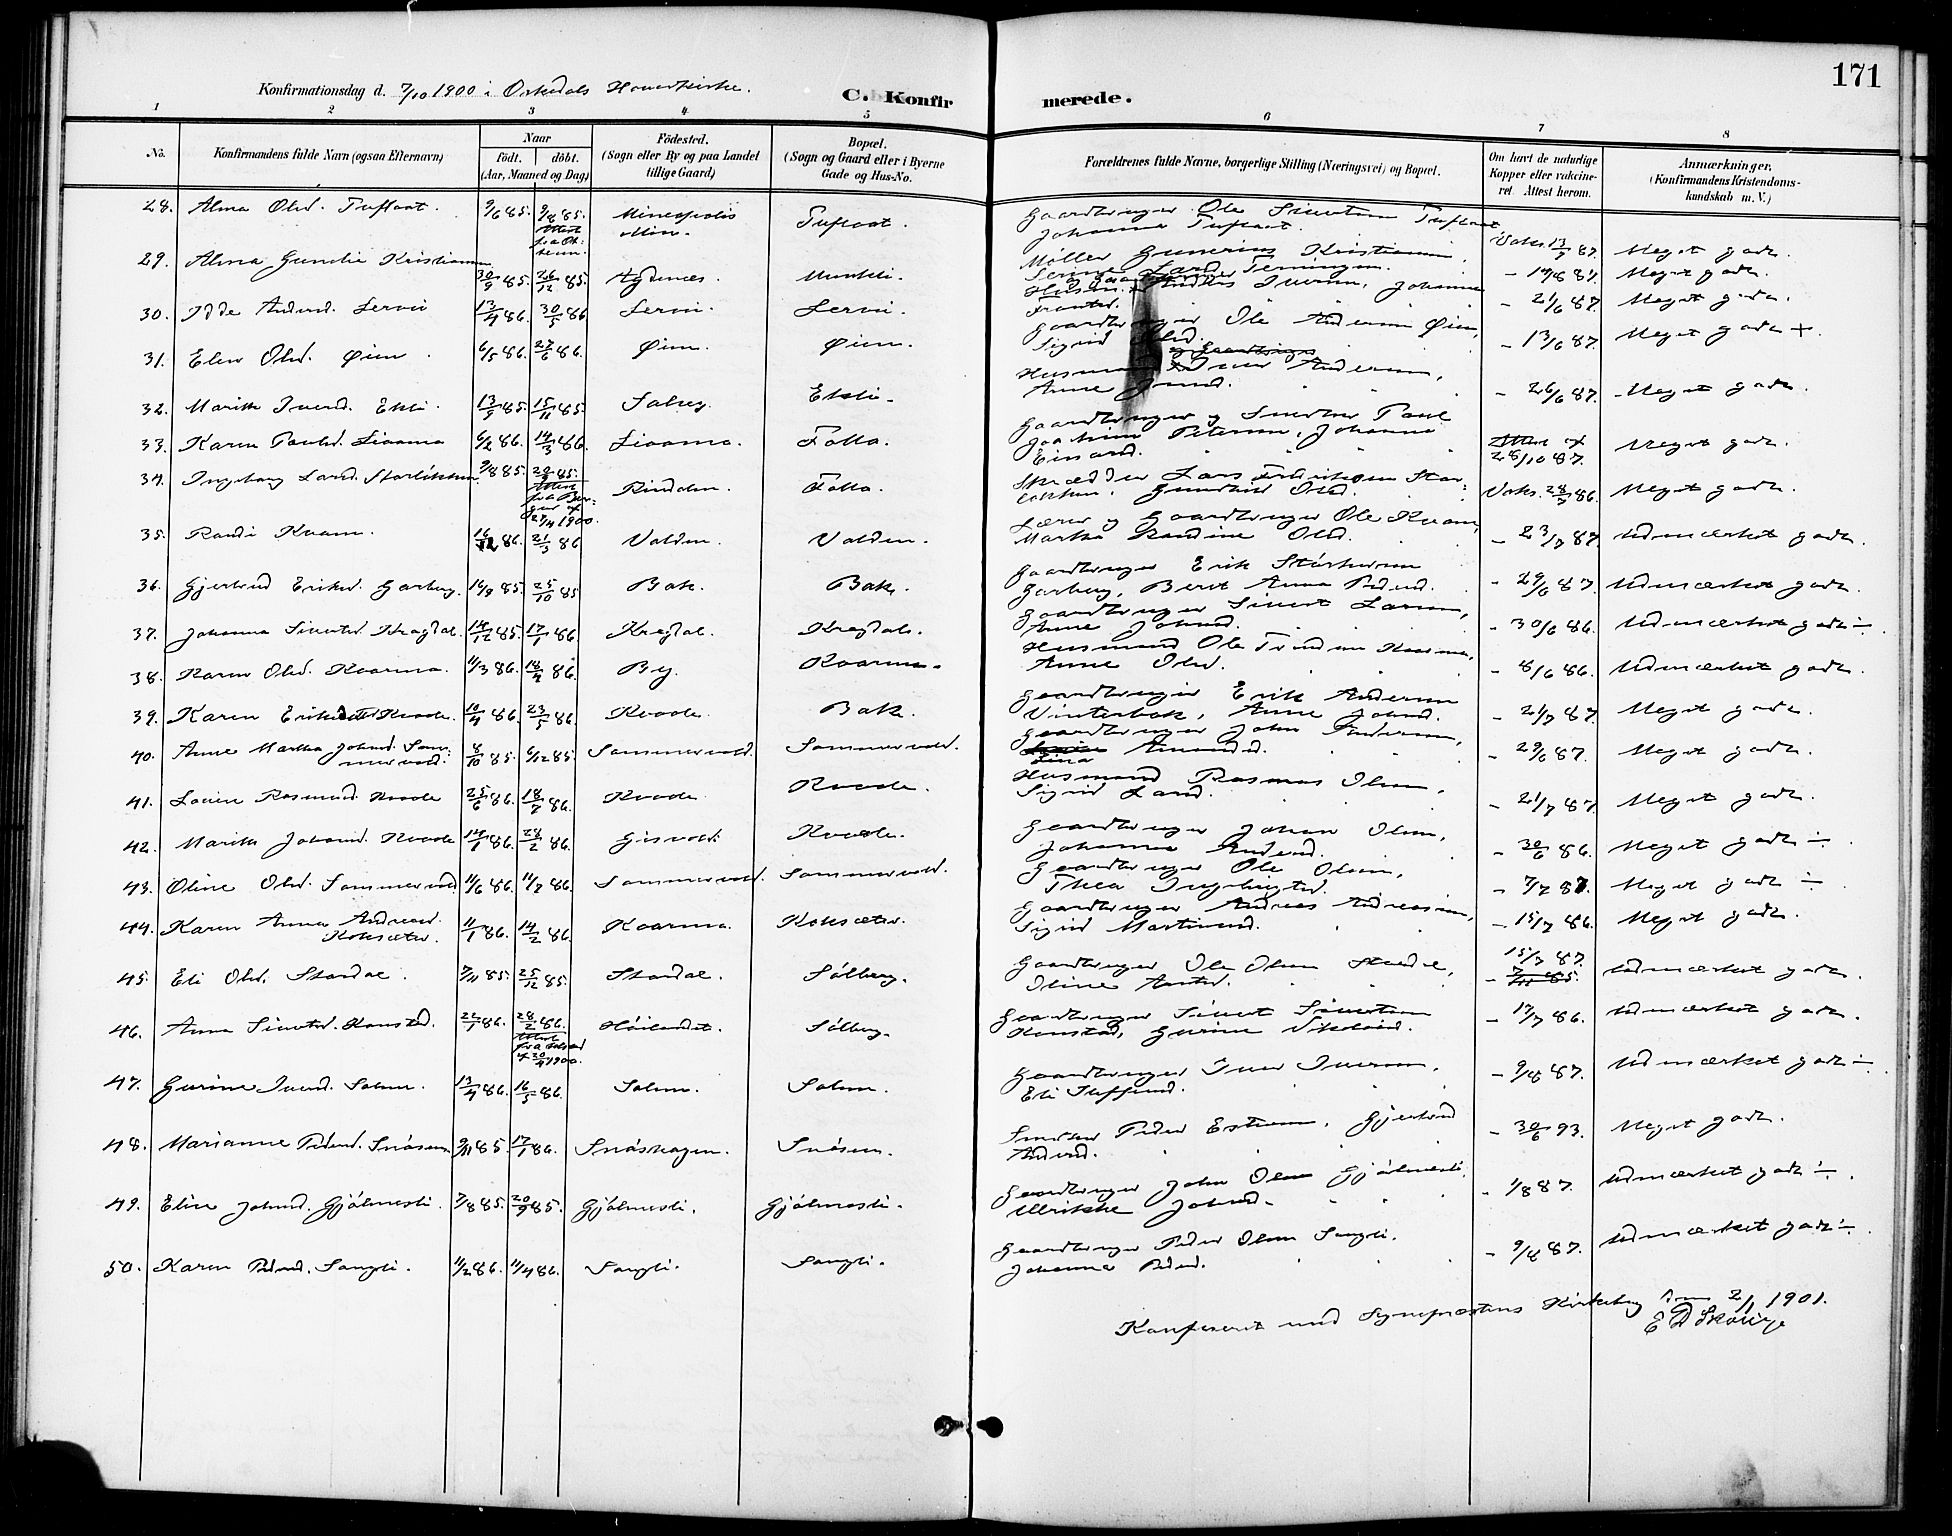 171
Konfirmationsdag d. 7/10 1900 i Orkedals Hovedkirke.
C. Konfirmerede.
1 2 3 4 5 6 7 8
No.
Konfirmandens fulde Navn (ogsaa Efternavn)
Naar
födt. döbt.
(Aar, Maaned og Dag)
Födested.
(Sogn eller By og paa Landet
tillige Gaard)
Bopæl.
(Sogn og Gaard eller i Byerne
Gade og Hus-No.
Forældrenes fulde Navne, borgerlige Stilling (Næringsvei) og Bopæl.
Om havt de naturlige
Kopper eller vakcine-
ret. Attest herom.
Anmærkninger,
(Konfirmandens Kristendoms-
kundskab m. V.)
28. Alma Olsd. Tuflaat. 9/6 85. 9/8 85. Mineapolis Min. Tuflaat. Gaardbruger Ole Sivertsen Tuflaat
Johanna Tuflaat. Vaks. 13/7 87. Meget godt.
29. Alma Gunelie Kristiansen 30/9 85. 26/12 85. Agdenes. Munkli. Møller Gunerius Kristiansen.
Serine Larsd. Terningen. - 19/8 87. Meget godt.
30. 13/4 86. 30/5 86 Lervi. Lervi. Johanna
- 21/6 87. Meget godt.
31. Elen Olsd. Øien. 6/5 86. 27/6 86. Øien. Øien. Gaardbruger Ole Andersen Øien,
Sigrid Olsd. - 13/6 87. Meget godt +.
32. Marit Iversd. Ekli. 13/9 85. 15/11 85. Ekli. Husmand Iver Andersen,
Anne - 26/6 87. Meget godt.
33. Karen Paulsd. 6/2 86. 14/3 86. Folla. Gaardbruger og Snedker Paul
Joachim Petersen, Johanna
Einarsd. 28/10 87. Meget godt.
34. Ingeborg Larsd. 9/8 85. 20/9 85. Rindalen. Folla. Skrædder Lars
Gunhild Olsd. Vaks. 28/7 86. Meget godt.
35. Randi Kvam. 16/12 86. 21/3 86 Valden. Valden. Lærer og Gaardbruger Ole Kvam,
Martha Randine Olsd. - 23/7 87. Udmærket godt.
36. Gjertrud Eriksd. Garberg. 14/9 85. 25/10 85 Bak. Bak. Gaardbruger Erik Størkersen
Garberg, Berit Anna Pedersd. - 29/6 87. Udmærket godt.
37. Johanna Sivertsd. Kragdal. 14/12 85. 17/1 86. Kragdal. Kragdal. Gaardbruger Sivert Larsen,
Anne Johnsd. - 30/6 86. Udmærket godt ÷.
38. Karen Olsd. Kvarme. 11/3 86. 18/4 86. By. Kvarme. Husmand Ole
Anne Olsd. - 8/6 86. Udmærket godt.
39. Karen Eriksd. Kvaale. 10/4 86. 23/5 86. Kvaale. Bak. Gaardbruger Erik Andersen
Vinterbak, Anne Johnsd. - 21/7 87. Meget godt.
40. Anne Martha Johnsd. Som-
mervold. 8/10 85. 6/12 85. Sommervold. Sommervold. Gaardbruger John Andersen,
Lina Amundsd. - 29/6 87. Meget godt.
41. Rasmusd. Kvaale 25/6 86. 18/7 86. Kvaale. Kvaale. Husmand Rasmus Olsen,
Sigrid Larsd. - 21/7 87. Meget godt.
42. Marit Johansd. Kvaale 14/1 86. 28/2 86. Gisvold. Kvaale. Gaardbruger Johan Olsen,
Johanna Andersd. - 30/6 86. Meget godt ÷.
43. Oline Olsd. Sommervold. 11/6 86. 11/7 86. Sommervold. Sommervold. Gaardbruger Ole Olsen,
Thea Ingebrigtsd. - 7/7 87. Meget godt ÷.
44. Karen Anna Andreasd.
Koksæter. 11/1 86. 14/2 86. Kvarme. Koksæter. Gaardbruger Andreas Andreassen,
Sigrid Martinusd. - 15/7 86. Meget godt.
45. Eli Olsd. Skardal. 7/11 85. 25/12 85. Skardal. Sølberg. Gaardbruger Ole Olsen Skardal,
15/7 87. Udmærket godt.
46. Anna Sivertsd. Konstad. 22/1 86. 28/2 86. Høilandet. Sølberg. Gaardbruger Sivert Sivertsen
Konstad, Gurine - 17/7 86. Udmærket godt.
47. Gurine Iversd. Solem. 13/4 86. 16/5 86. Solem. Solem. Gaardbruger Iver Iversen,
Eli Steffensd. - 9/8 87. Udmærket godt ÷.
48. Marianne Pedersd. Snøsen 9/11 85. 17/1 86. Snøshagen. Snøsen. Smeden Peder Estensen, Gjertrud
Andersd. - 30/6 93. Meget godt.
49. Elise Johnsd. Gjølmesli. 7/8 85. 20/9 85. Gjølmesli. Gjølmesli. Gaardbruger John Olsen Gjølmesli.
Ulrikke Johnsd. - 1/8 87. Udmærket godt ÷.
50. Karen Pedersd. Songli. 11/2 86. 11/4 86. Songli. Songli. Gaardbruger Peder Olsen Songli.
Johanna Pedersd. - 9/8 87. Udmærket godt ÷.
Konfereret med Sognepræstens Kirkebog den 2/1 1901.